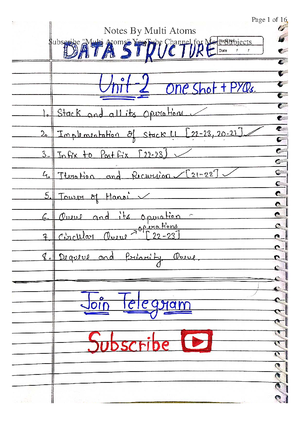 Page 1 of 16
Notes By Multi Atoms
Subscribe "Multi Atoms" YouTube Channel for More Subjects.
DATA STRUCTURE
Unit-2 One Shot + PYQs.
1. Stack and all its operation ✓
2. Implementation of Stack LL [22-23, 20-21] ✓
3. Infix to Postfix [22-23) ✓
4. Iteration and Recursion ✓ [21-22] ✓
5. Tower of Hanoi ✓
6. Queue and its operation -
7. Circular Queue → operations [22-23]
8. Dequeue and Priority Queue.
Join Telegram
Subscribe